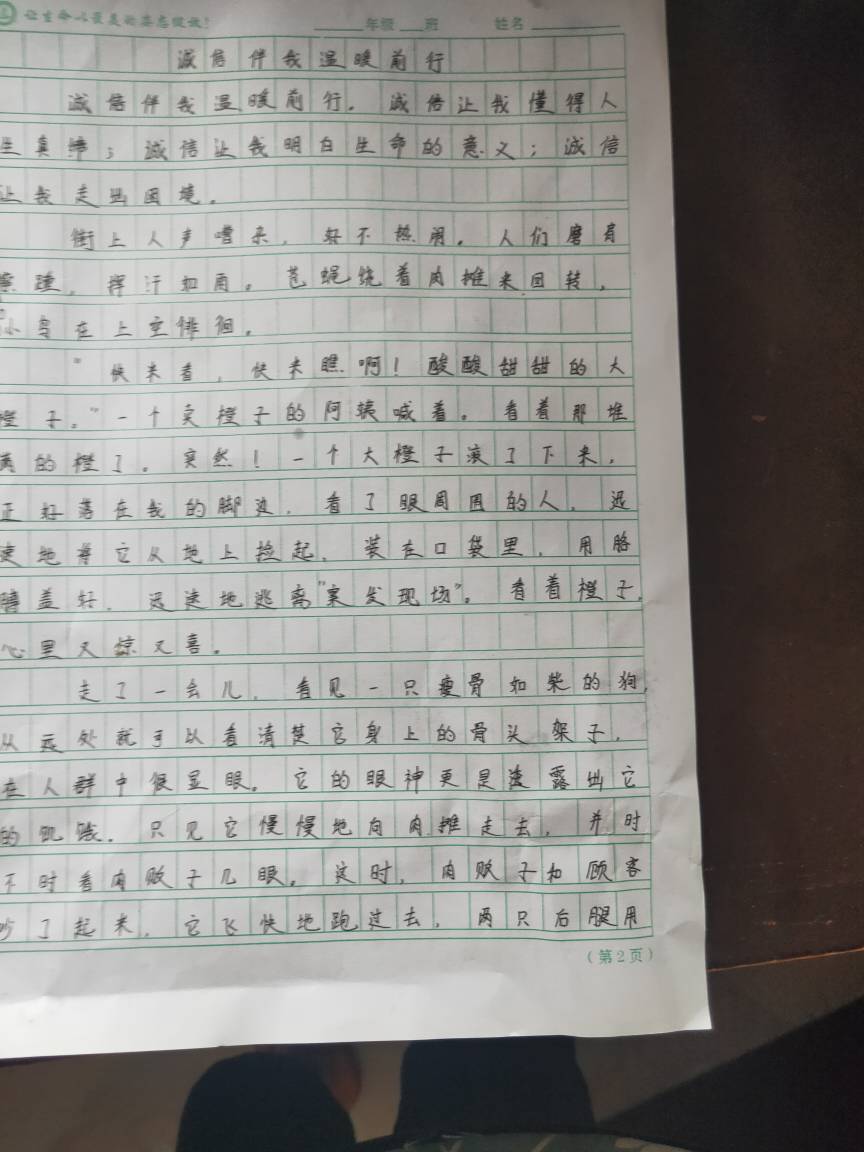 让生命以最美的姿态绽放!
年级 班 姓名
诚信伴我温暖前行
诚信伴我温暖前行。诚信让我懂得人
生真缔;诚信让我明白生命的意义;诚信
让我走出困境。
街上人声嘈杂,好不热闹。人们磨肩
接踵,挥汗如雨。苍蝇绕着肉摊来回转,
小鸟在上空徘徊。
"快来看,快来瞧啊!酸酸甜甜的大
橙子。"一个卖橙子的阿姨喊着。看着那堆
满的橙了。突然!一个大橙子滚了下来,
正好落在我的脚边,看了眼周围的人,迅
速地将它从地上捡起,装在口袋里,用胳
膊盖好,迅速地逃离"案发现场"。看着橙子,
心里又惊又喜。
走了一会儿,看见一只瘦骨如柴的狗,
从远处就可以看清楚它身上的骨头架子,
在人群中很显眼。它的眼神更是透露出它
的饥饿。只见它慢慢地向肉摊走去,并时
不时看肉贩子几眼。这时,肉贩子和顾客
吵了起来,它飞快地跑过去,两只后腿用
(第2页)